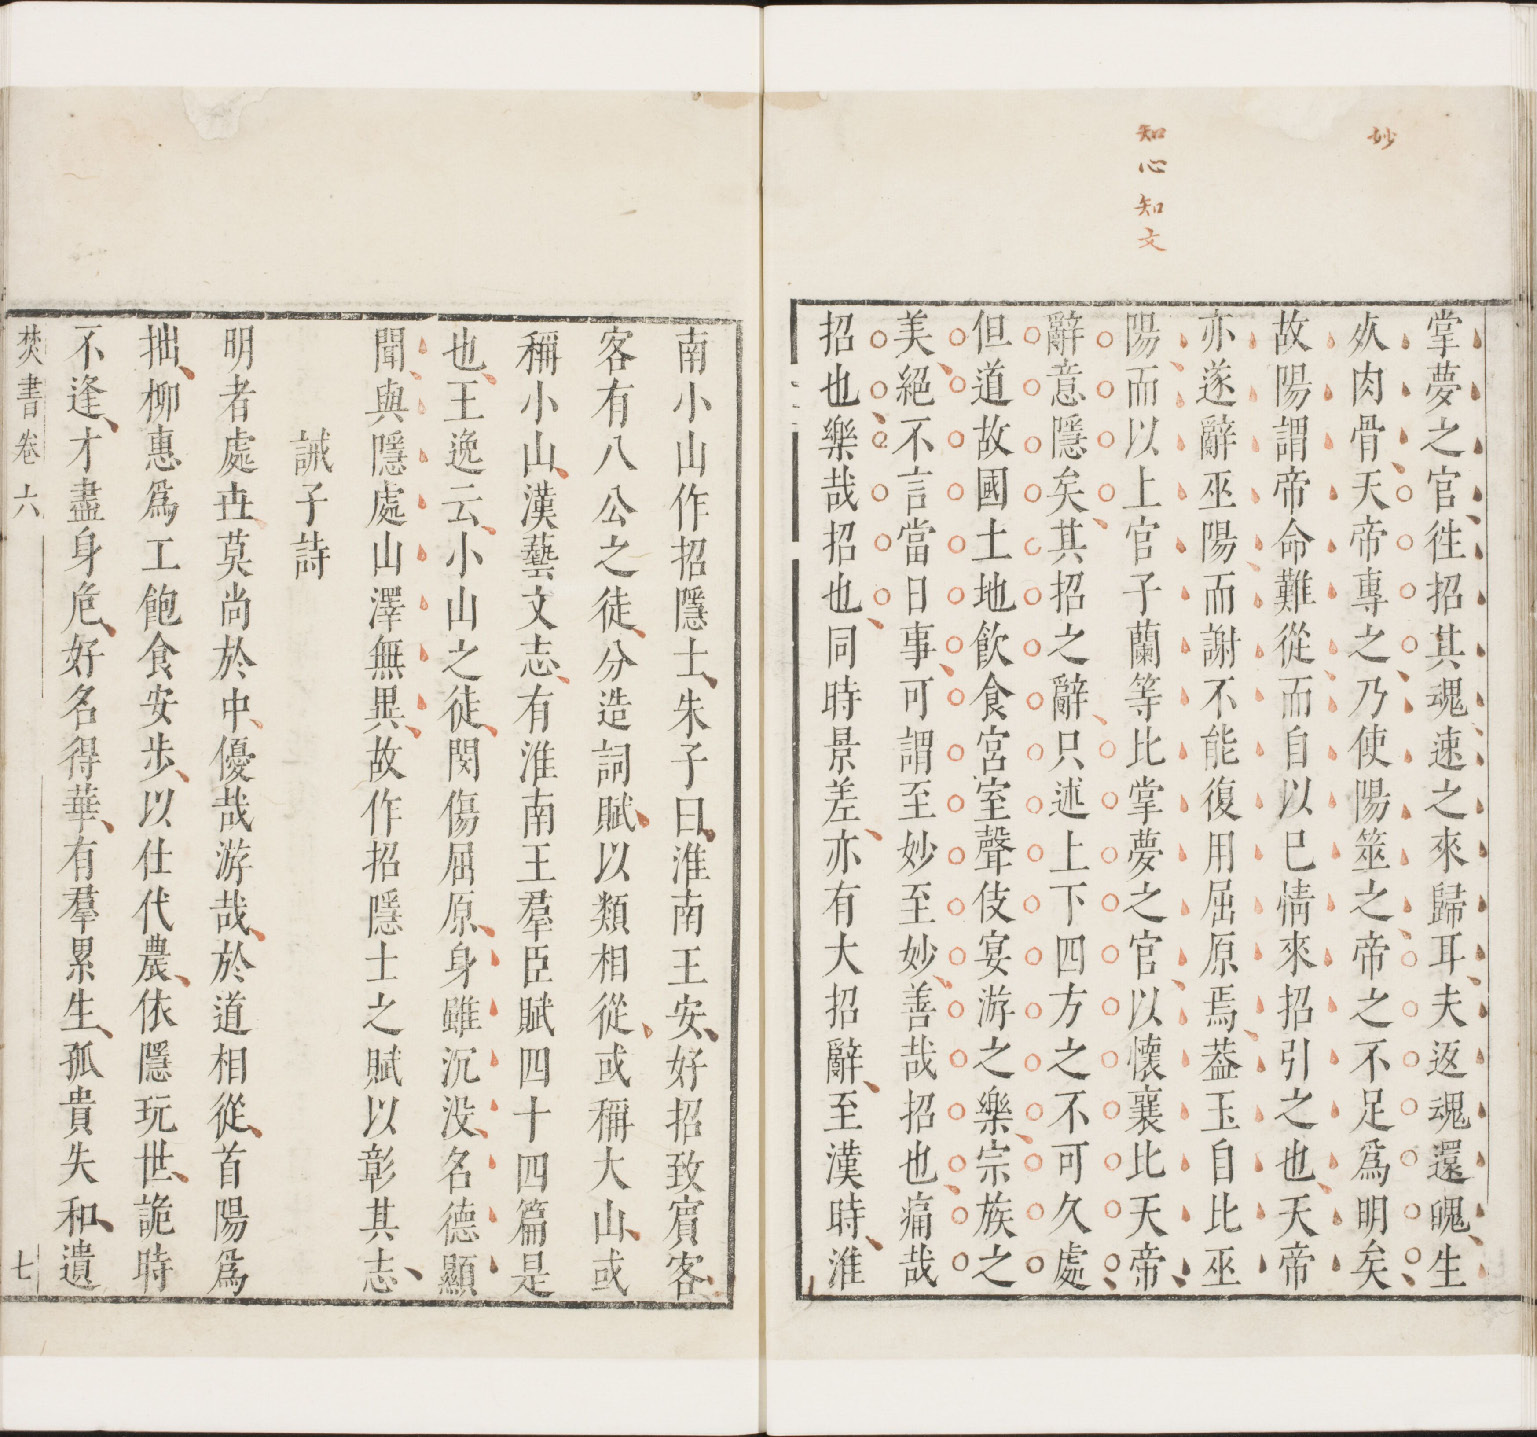 妙
知心知文
掌夢之官徃招其魂速之來歸耳夫返魂還魄生
死肉骨天帝專之乃使陽筮之帝之不足爲明矣
故陽謂帝命難從而自以巳情來招引之也天帝
亦遂辭巫陽而謝不能復用屈原焉葢玉自比巫
陽而以上官子蘭等比掌夢之官以懐襄比天帝
辭意隱矣其招之辭只述上下四方之不可久處
但道故國土地飲食宮室聲伎宴游之樂宗族之
美絕不言當日事可謂至妙至妙善哉招也痛哉
招也樂哉招也同時景差亦有大招辭至漢時淮
南小山作招隱士朱子曰淮南王安好招致賓客
客有八公之徒分造詞賦以類相從或稱大山或
稱小山漢藝文志有淮南王羣臣賦四十四篇是
也王逸云小山之徒閔傷屈原身雖沉没名德顯
聞與隱處山澤無異故作招隱士之賦以彰其志
誡子詩
明者處世莫尚於中優哉游哉於道相從首陽爲
拙柳惠爲工飽食安步以仕代農依隱玩世詭時
不逢才盡身危好名得華有羣累生孤貴失和遺
焚書卷六 七